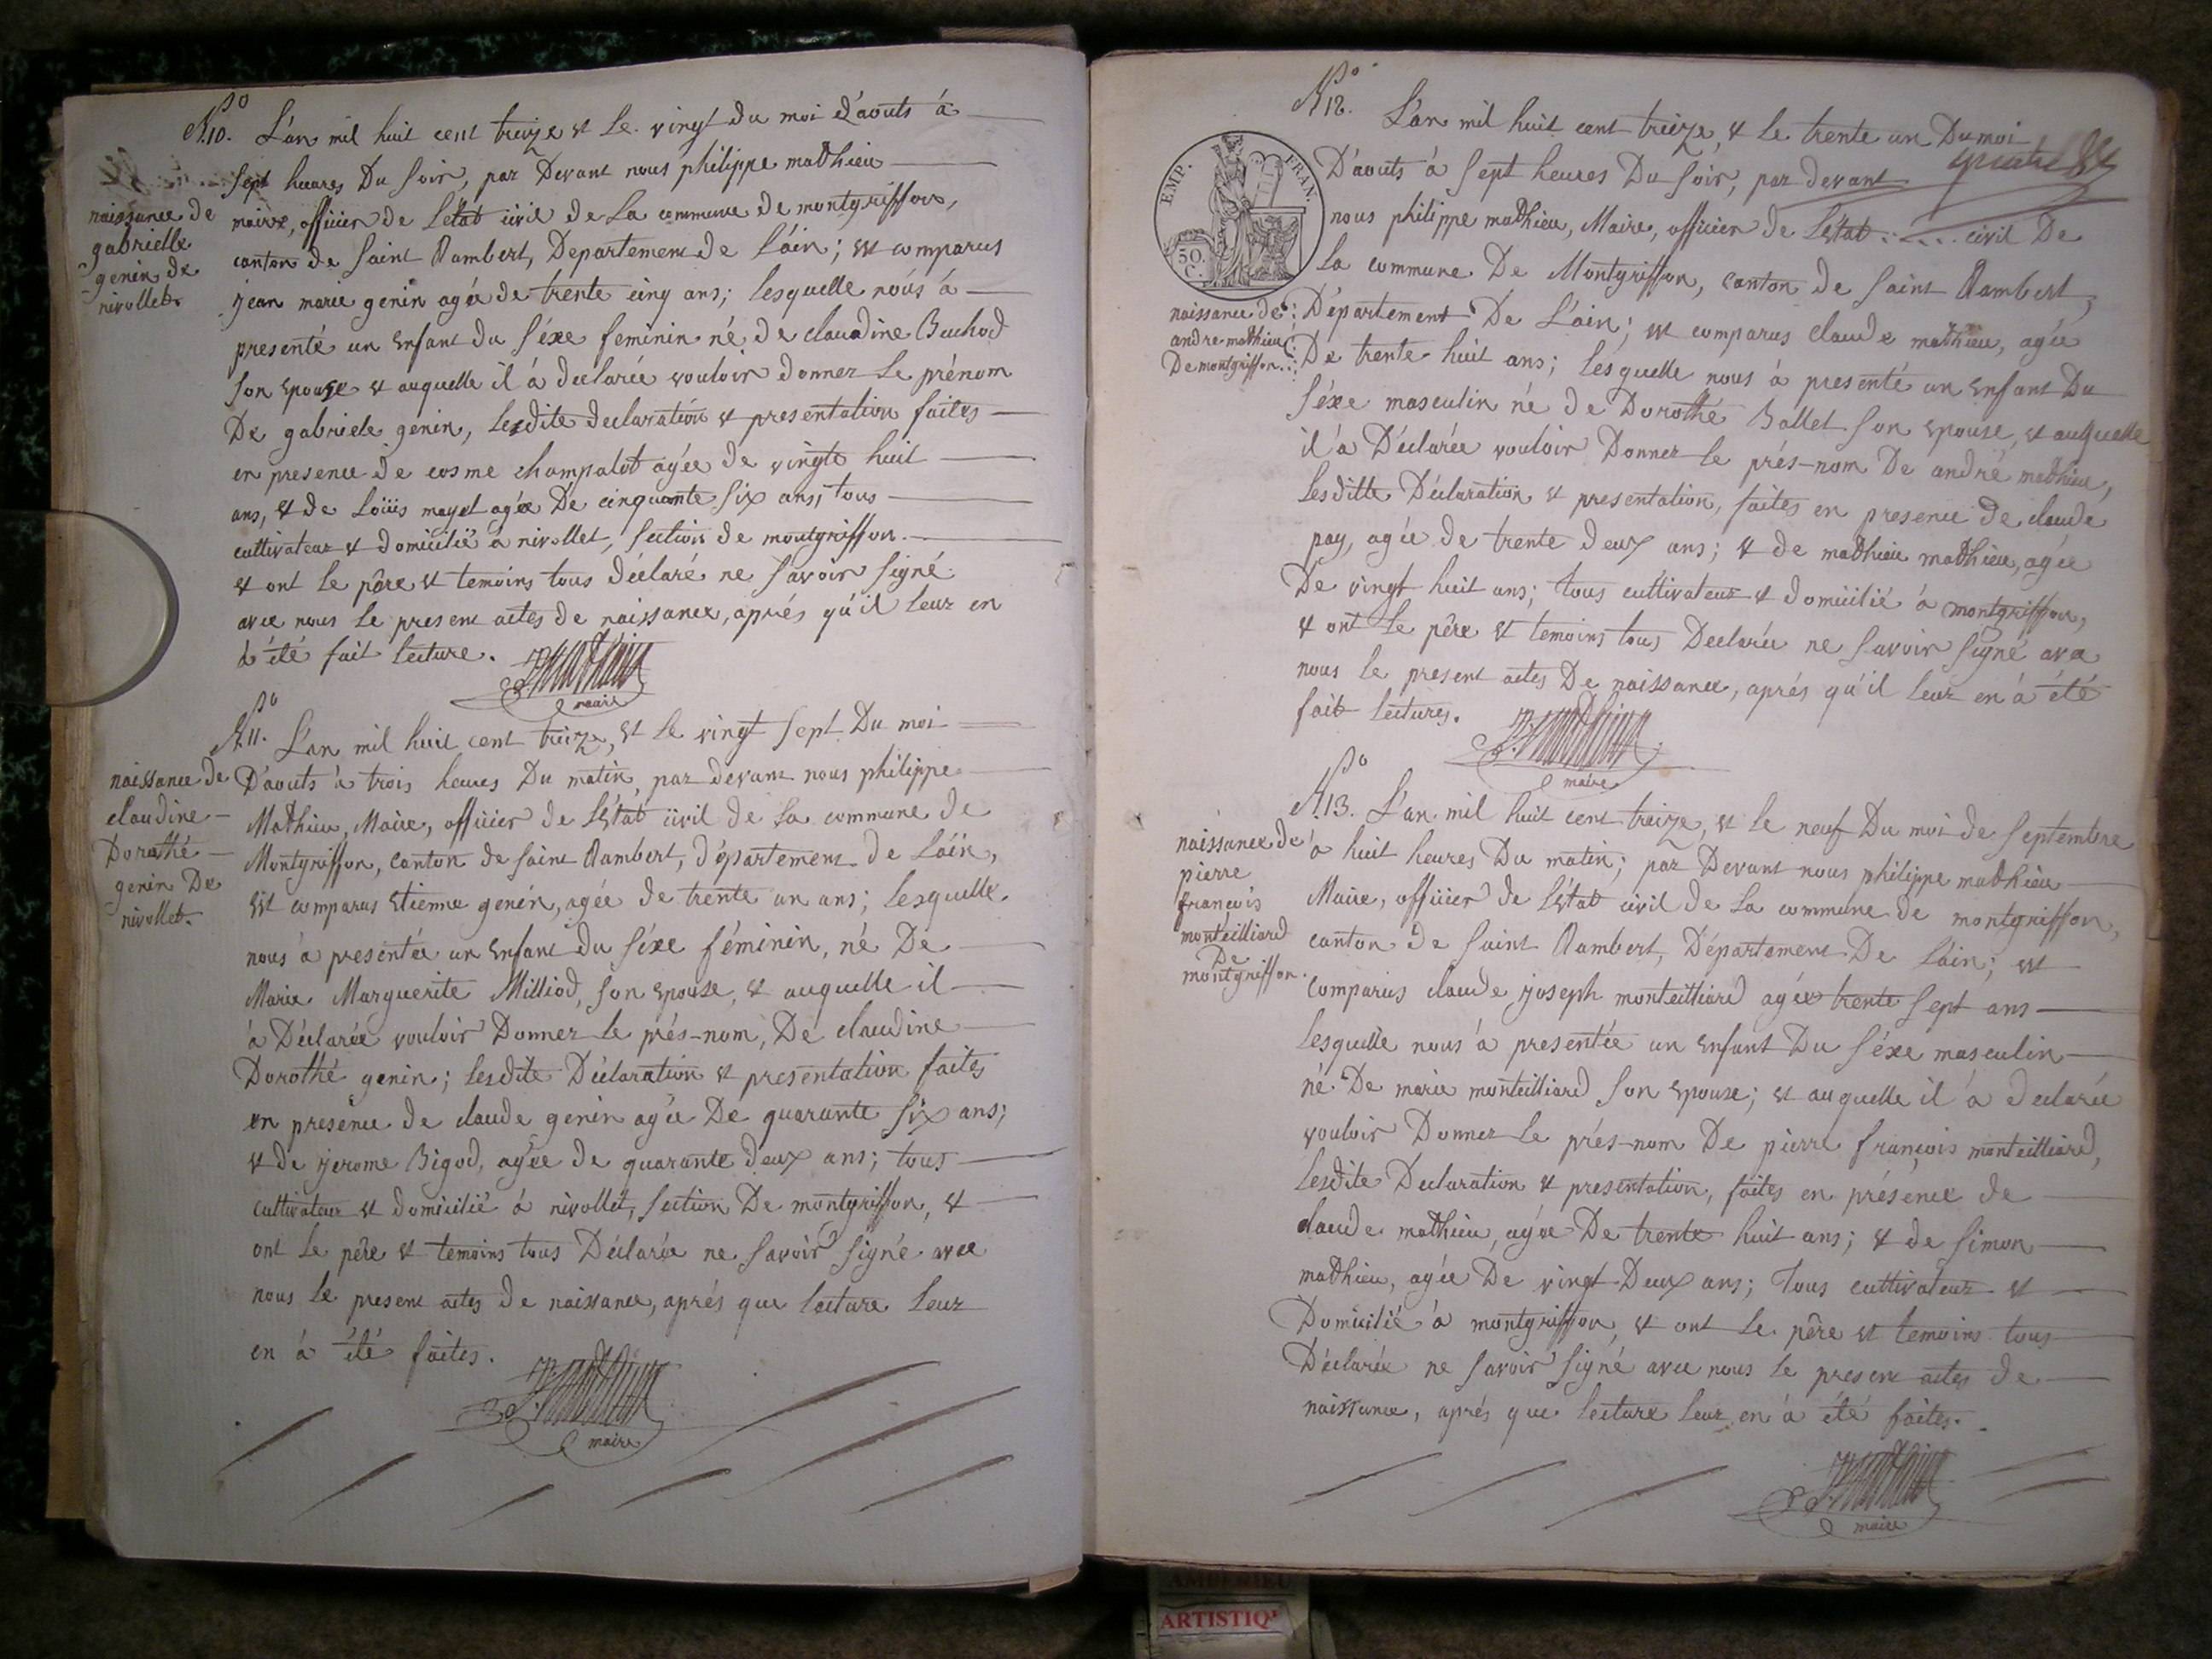 No 10. L'an mil huit cent treize et le vingt du moi d'aouts à
sept heures Du soir, par Devant nous philippe mathieu
maire, officier de L'état civil de La commune de montgriffon,
canton de saint Rambert, Departement de L'áin; est comparus
jean marie genin agée de trente cinq ans; lesquelle nous à
presenté un enfant du séxe feminin né de claudine Buchod
son epouse et auquelle il à declarée vouloir donner le prénom
De gabriele genin, lesdite declaration et presentation faites
en presence de cosme champalot agée de vingte huit
ans, et de Loüis mayet agée De cinquante six ans, tous
cultivateur et domicilié à nivollet, section de montgriffon.
et ont le père et temoins tous déclaré ne savoir signé
avec nous le present actes de naissance, aprés qu'il leur en
à été fait lecture.
maire
naissance de
gabrielle
genin de
nivollet
No 11. L'an mil huit cent treize, et le vingt sept Du moi
D'aouts à trois heures Du matin, par devant nous philippe
Mathieu, Maire, officier de L'état civil de La commune de
Montgriffon, canton de saint Rambert, département de L'áin,
est comparus etienne genin, agée de trente un ans; lesquelle
nous à presentée un enfant du séxe féminin, né De
Marie Marguerite Milliod, son epouse, et auquelle il
à Déclarée vouloir Donner le prés-nom, De claudine
Dorothé genin; lesdite Déclaration et presentation faites
en presence de claude genin agée De quarante six ans;
et de jerome Bigod, agée de quarante deux ans; tous
cultivateur et domicilié à nivollet, section De montgriffon, et
ont le père et temoins tous Déclarée ne savoir signé avec
nous le present actes de naissance, aprés que lecture leur
en à été faites.
maire
naissance de
claudine
Dorothé
genin De
nivollet.
No 12. L'an mil huit cent treize, et le trente un Du moi
D'aouts à sept heures Du soir, par devant
nous philippe mathieu, Maire, officier de L'état civil De
La commune De Montgriffon, canton de saint Rambert,
Département De L'ain; est comparus claude mathieu, agée
De trente huit ans; lesquelle nous à presenté un enfant Du
séxe masculin né de Dorothé Ballet son epouse, et auquelle
il à Déclarée vouloir Donner le prés-nom De andré mathieu,
lesditte Déclaration et presentation, faites en presence de claude
pay, agée de trente deux ans; et de mathieu mathieu, agée
De vingt huit ans; tous cultivateur et domicilié à montgriffon,
et ont le père et temoins tous Declarée ne savoir signé avec
nous le present actes De naissance, aprés qu'il leur en à été
fait lectures.
maire
EMP. FRAN.
50.
C.
naissance de
andre mathieu
De montgriffon
No 13. L'an mil huit cent treize, et le neuf Du moi de septembre
à huit heures Du matin; par Devant nous philippe mathieu
Maire, officier de L'état civil de La commune de montgriffon,
canton de saint Rambert, Département De L'áin; est
comparus claude joseph monteilliard agée trente sept ans
lesquelle nous à presentée un enfant Du séxe masculin
né De marie monteilliard son epouse; et auquelle il à declarée
vouloir Donner le prés-nom De pierre françois monteilliard,
lesdite Declaration et presentation, faites en présence de
claude mathieu, agée De trente huit ans; et de simon
mathieu, agée De vingt Deux ans; Tous cultivateur et
Domicilié à montgriffon, et ont le père et temoins tous
Déclarée ne savoir signé avec nous le present actes de
naissance, aprés que lecture leur en à été faites.
maire
naissance de
pierre
françois
monteilliard
De
montgriffon.
ARTISTIQ'